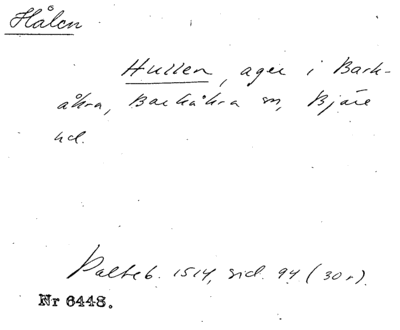 Hålen
Hullen, ager i Bark-
åkra, Barkåkra sn, Bjäre
hd.
Palteb. 1514, sid. 94 (30r).
Nr 6448.